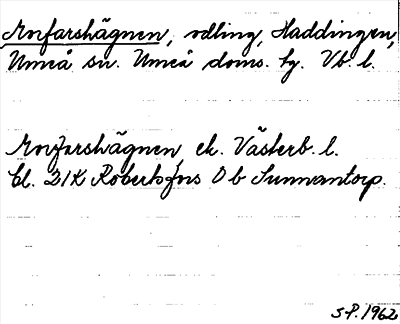 Morfarshägnen, odling, Haddingen,
Umeå sn. Umeå doms. tg. Vb. l.
Morfarshägnen, ek. Västerb. l.
Bl. 21K Robertsfors 0 b Sunnantorp.
S.P. 1962